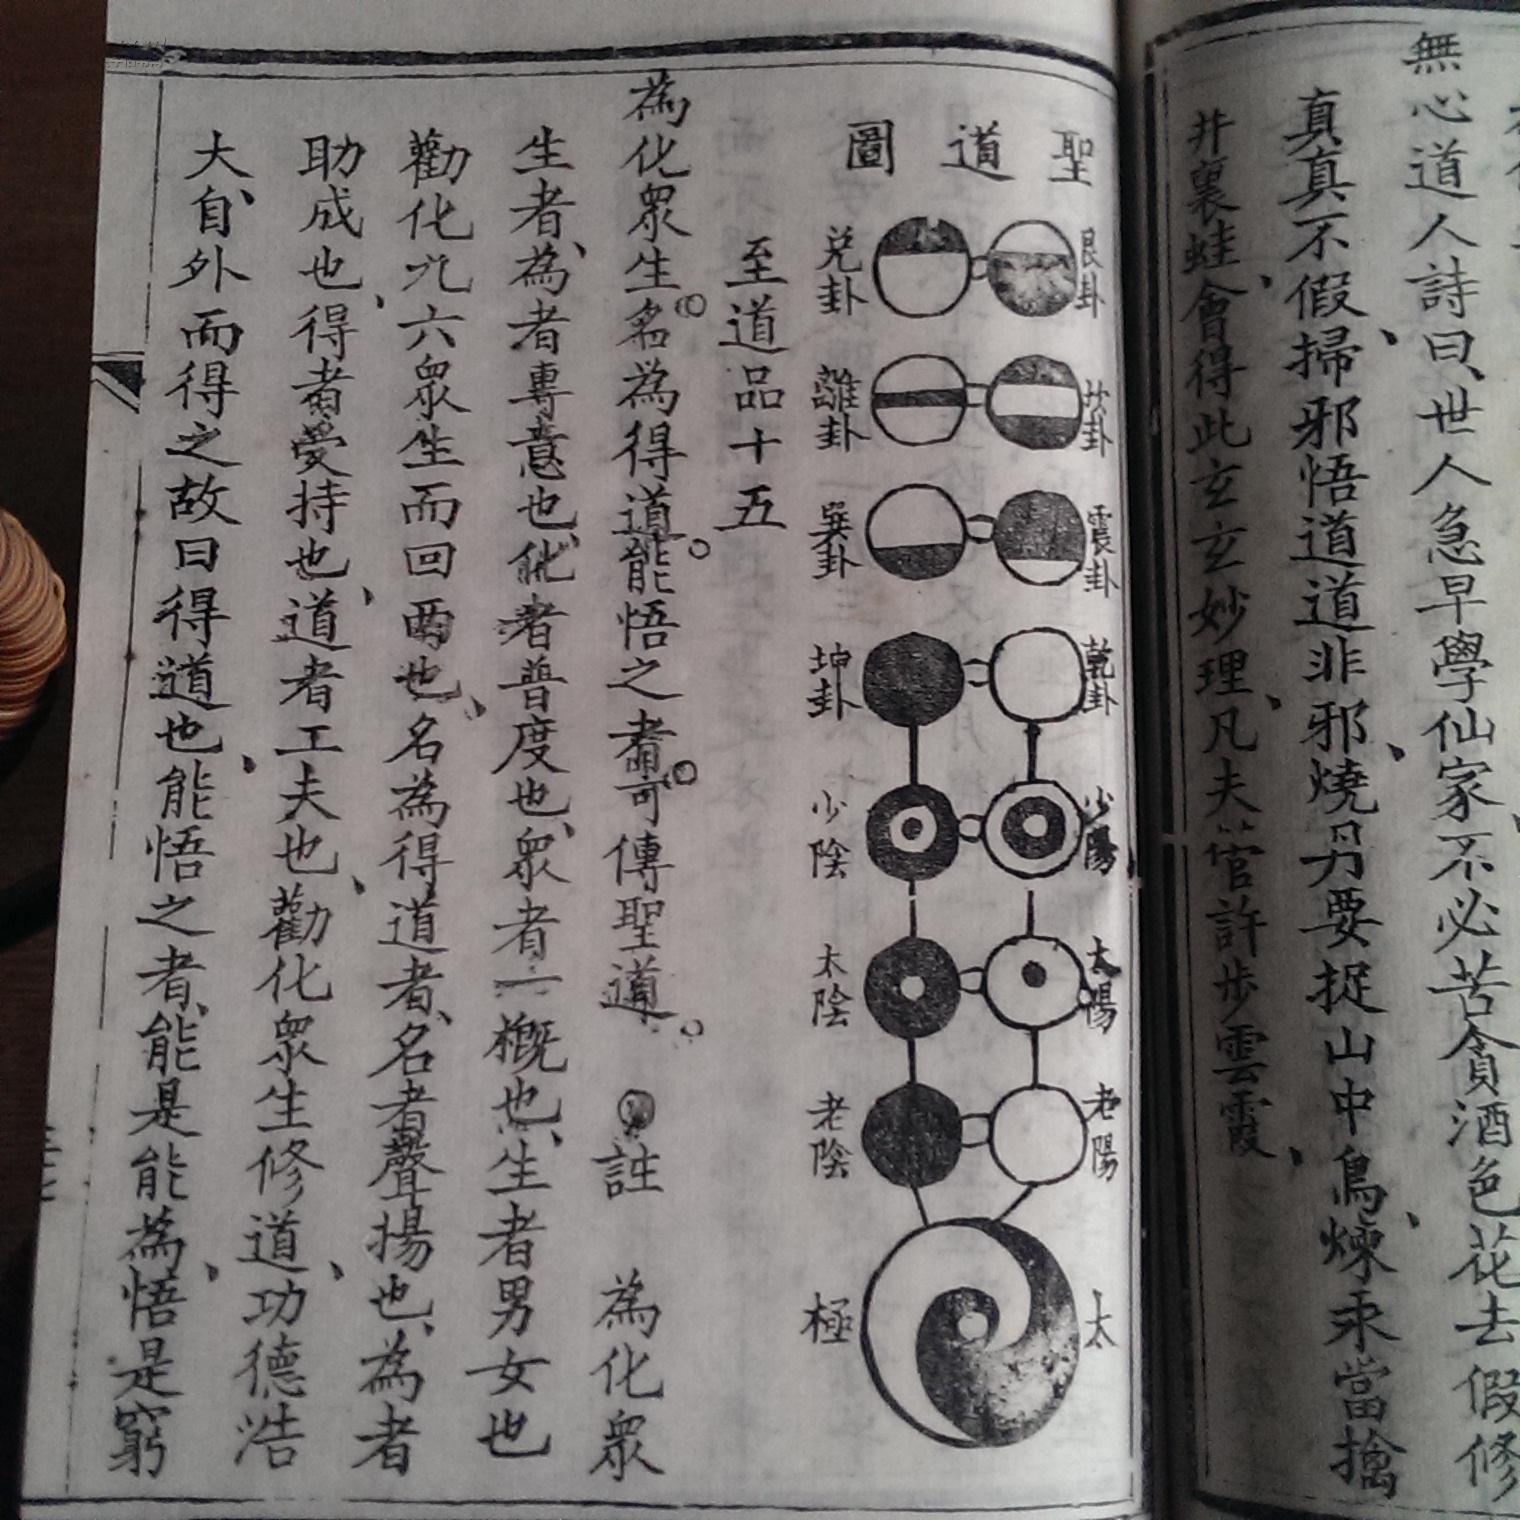 無心道人詩曰世人急早學仙家不必苦貪酒色花去假修
真真不假掃邪悟道道非邪燒丹要捉山中鳥煉汞當擒
井裏蛙會得此玄玄妙理凡夫管許步雲霞
聖道圖
艮卦 兌卦
坎卦 離卦
震卦 巽卦
乾卦 坤卦
少陽 少陰
太陽 太陰
老陽 老陰
太極
至道品十五
為化眾生名為得道能悟之者可傳聖道 註 為化眾
生者為者專意也化者普度也眾者一概也生者男女也
勸化九六眾生而回兩也名為得道者名者聲揚也為者
助成也得者受持也道者工夫也勸化眾生修道功德浩
大自外而得之故曰得道也能悟之者能是能為悟是窮